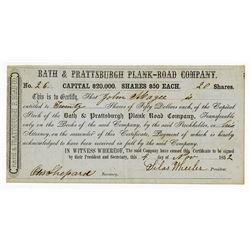 BATH & PRATTSBURGH PLANK-ROAD COMPANY.
No. 26 CAPITAL $20,000. SHARES $50 EACH. 20 Shares.
This is to Certify, That John Magee is
entitled to Twenty Shares of Fifty Dollars each, of the Capital
Stock of the Bath & Prattsburgh Plank Road Company, Transferable
only on the Books of the said Company, by the said Stockholder, or his
Attorney, on the surrender of this Certificate, Payment of which is hereby
acknowledged to have been received in full by the said Company.
IN WITNESS WHEREOF, The said Company have caused this Certificate to be signed
by their President and Secretary, this 4 day of Nov 1852
Shepard Secretary, Silas Wheeler President.